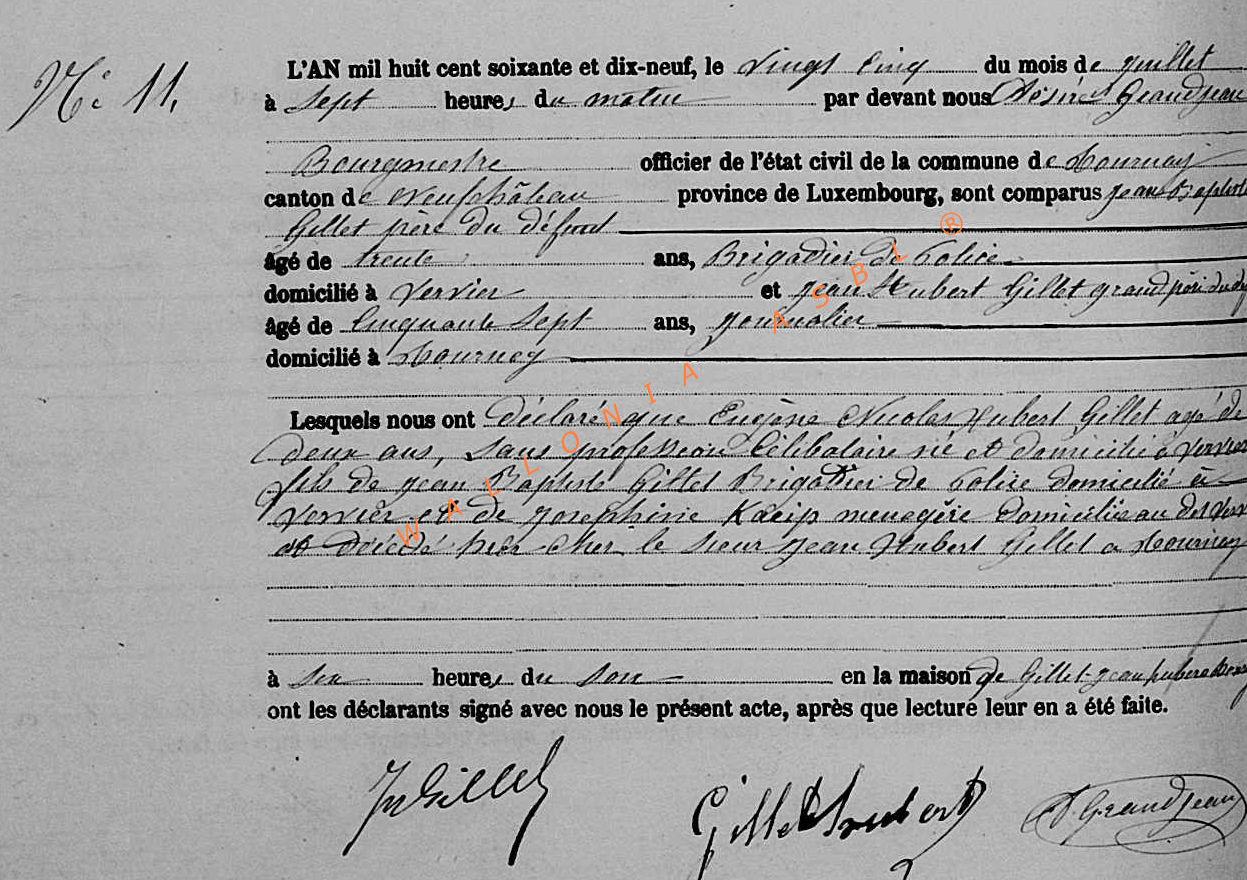 Nº 11.
L'AN mil huit cent soixante et dix-neuf, le Vingt Cinq du mois de juillet
à Sept heures du matin par devant nous Désiré Grandjean
Bourgmestre officier de l'état civil de la commune de Tournay
canton de Neufchâteau province de Luxembourg, sont comparus jean Baptiste
Gillet père du défunt
âgé de trente ans, Brigadier de Police
domicilié à Vervier et jean Hubert Gillet grand père du
âgé de Cinquante Sept ans, journalier
domicilié à Tournay
Lesquels nous ont déclaré que Eugène Nicolas Hubert Gillet agé de
deux ans, sans profession Célibataire né et domicilié à Vervier
fils de jean Baptiste Gillet Brigadier de Police domicilié à
Vervier et de Josephine Kaeip menagère domicilié au
est décédé hier cher le sieur jean Hubert Gillet a Tournay
à six heures du soir en la maison de Gillet jean hubert
ont les déclarants signé avec nous le présent acte, après que lecture leur en a été faite.
JBGillet Gillet Hubert D. Grandjean
WALLONIA ASBL ®